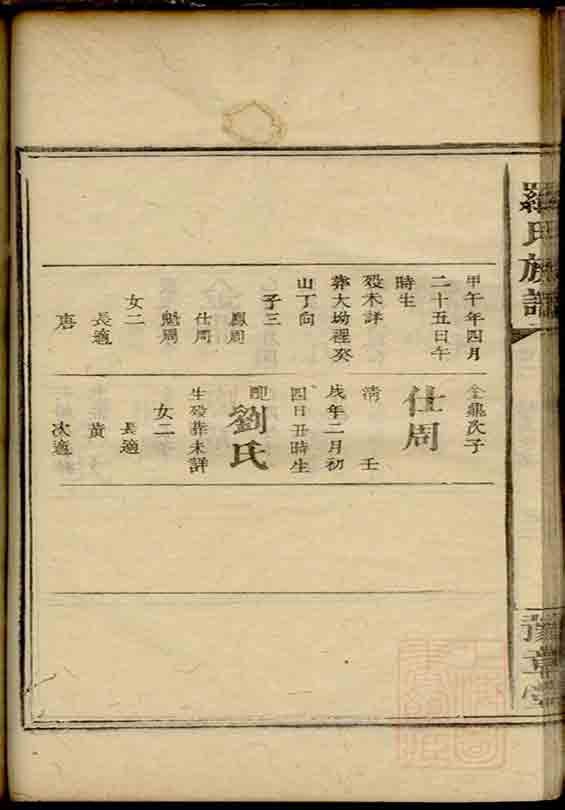 羅氏族譜
甲午年四月
二十五日午
時生
歿未詳
葬大坳裡癸
山丁向
子三
鳳周
仕周
魁周
女二
長適
唐
金鼎次子
仕周
清 壬
戌年二月初
四日丑時生
配
劉氏
生歿葬未詳
女二
長適
黃
次適
豫章堂